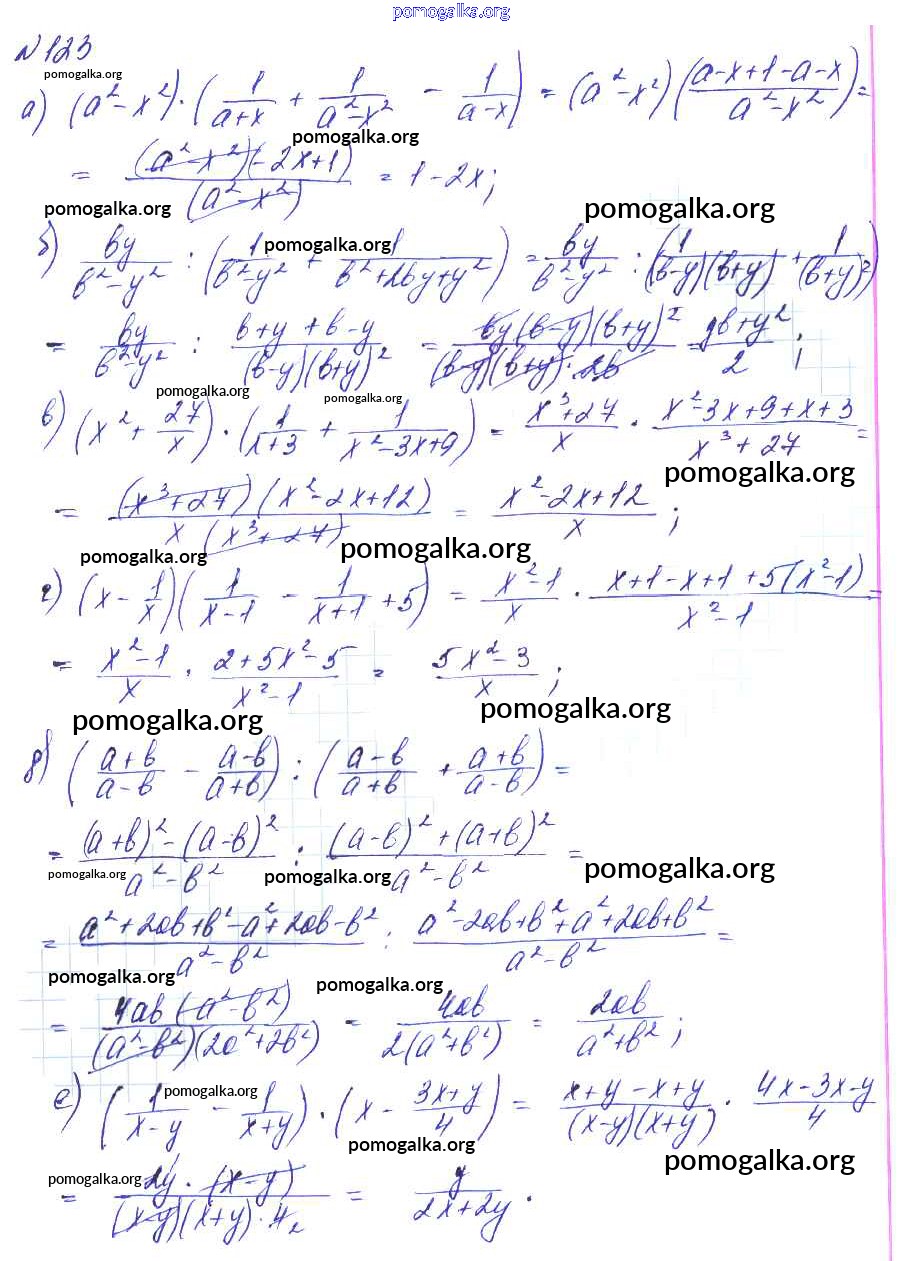 pomogalka.org
N 123
pomogalka.org
а) (a² - x²) · (1/(a+x) + 1/(a²-x²) - 1/(a-x)) = (a² - x²) ((a-x+1-a-x)/(a²-x²)) =
pomogalka.org
= (a²-x²)(-2x+1)/(a²-x²) = 1-2x;
pomogalka.org pomogalka.org
б) by/(b²-y²) : (1/(b²-y²) + 1/(b²+2by+y²)) = by/(b²-y²) : (1/((b-y)(b+y)) + 1/(b+y)²)
pomogalka.org
= by/(b²-y²) : (b+y+b-y)/((b-y)(b+y)²) = by(b-y)(b+y)²/((b-y)(b+y)·2b) = yb+y²/2;
pomogalka.org pomogalka.org
в) (x² + 27/x) · (1/(x+3) + 1/(x²-3x+9)) = (x³+27)/x · (x²-3x+9+x+3)/(x³+27) =
pomogalka.org
= (x³+27)(x²-2x+12)/(x(x³+27)) = (x²-2x+12)/x;
pomogalka.org pomogalka.org
г) (x - 1/x)(1/(x-1) - 1/(x+1) + 5) = (x²-1)/x · (x+1-x+1+5(x²-1))/(x²-1) =
= (x²-1)/x · (2+5x²-5)/(x²-1) = (5x²-3)/x;
pomogalka.org pomogalka.org
д) ((a+b)/(a-b) - (a-b)/(a+b)) : ((a-b)/(a+b) + (a+b)/(a-b)) =
= ((a+b)²-(a-b)²)/(a²-b²) : ((a-b)²+(a+b)²)/(a²-b²) =
pomogalka.org pomogalka.org pomogalka.org
= (a²+2ab+b²-a²+2ab-b²)/(a²-b²) : (a²-2ab+b²+a²+2ab+b²)/(a²-b²) =
pomogalka.org pomogalka.org
= 4ab(a²-b²)/((a²-b²)(2a²+2b²)) = 4ab/(2(a²+b²)) = 2ab/(a²+b²);
е) (1/(x-y) - 1/(x+y)) · (x - (3x+y)/4) = (x+y-x+y)/((x-y)(x+y)) · (4x-3x-y)/4
pomogalka.org
pomogalka.org pomogalka.org
= 2y·(x-y)/((x-y)(x+y)·4₂) = y/(2x+2y).
pomogalka.org
pomogalka.org